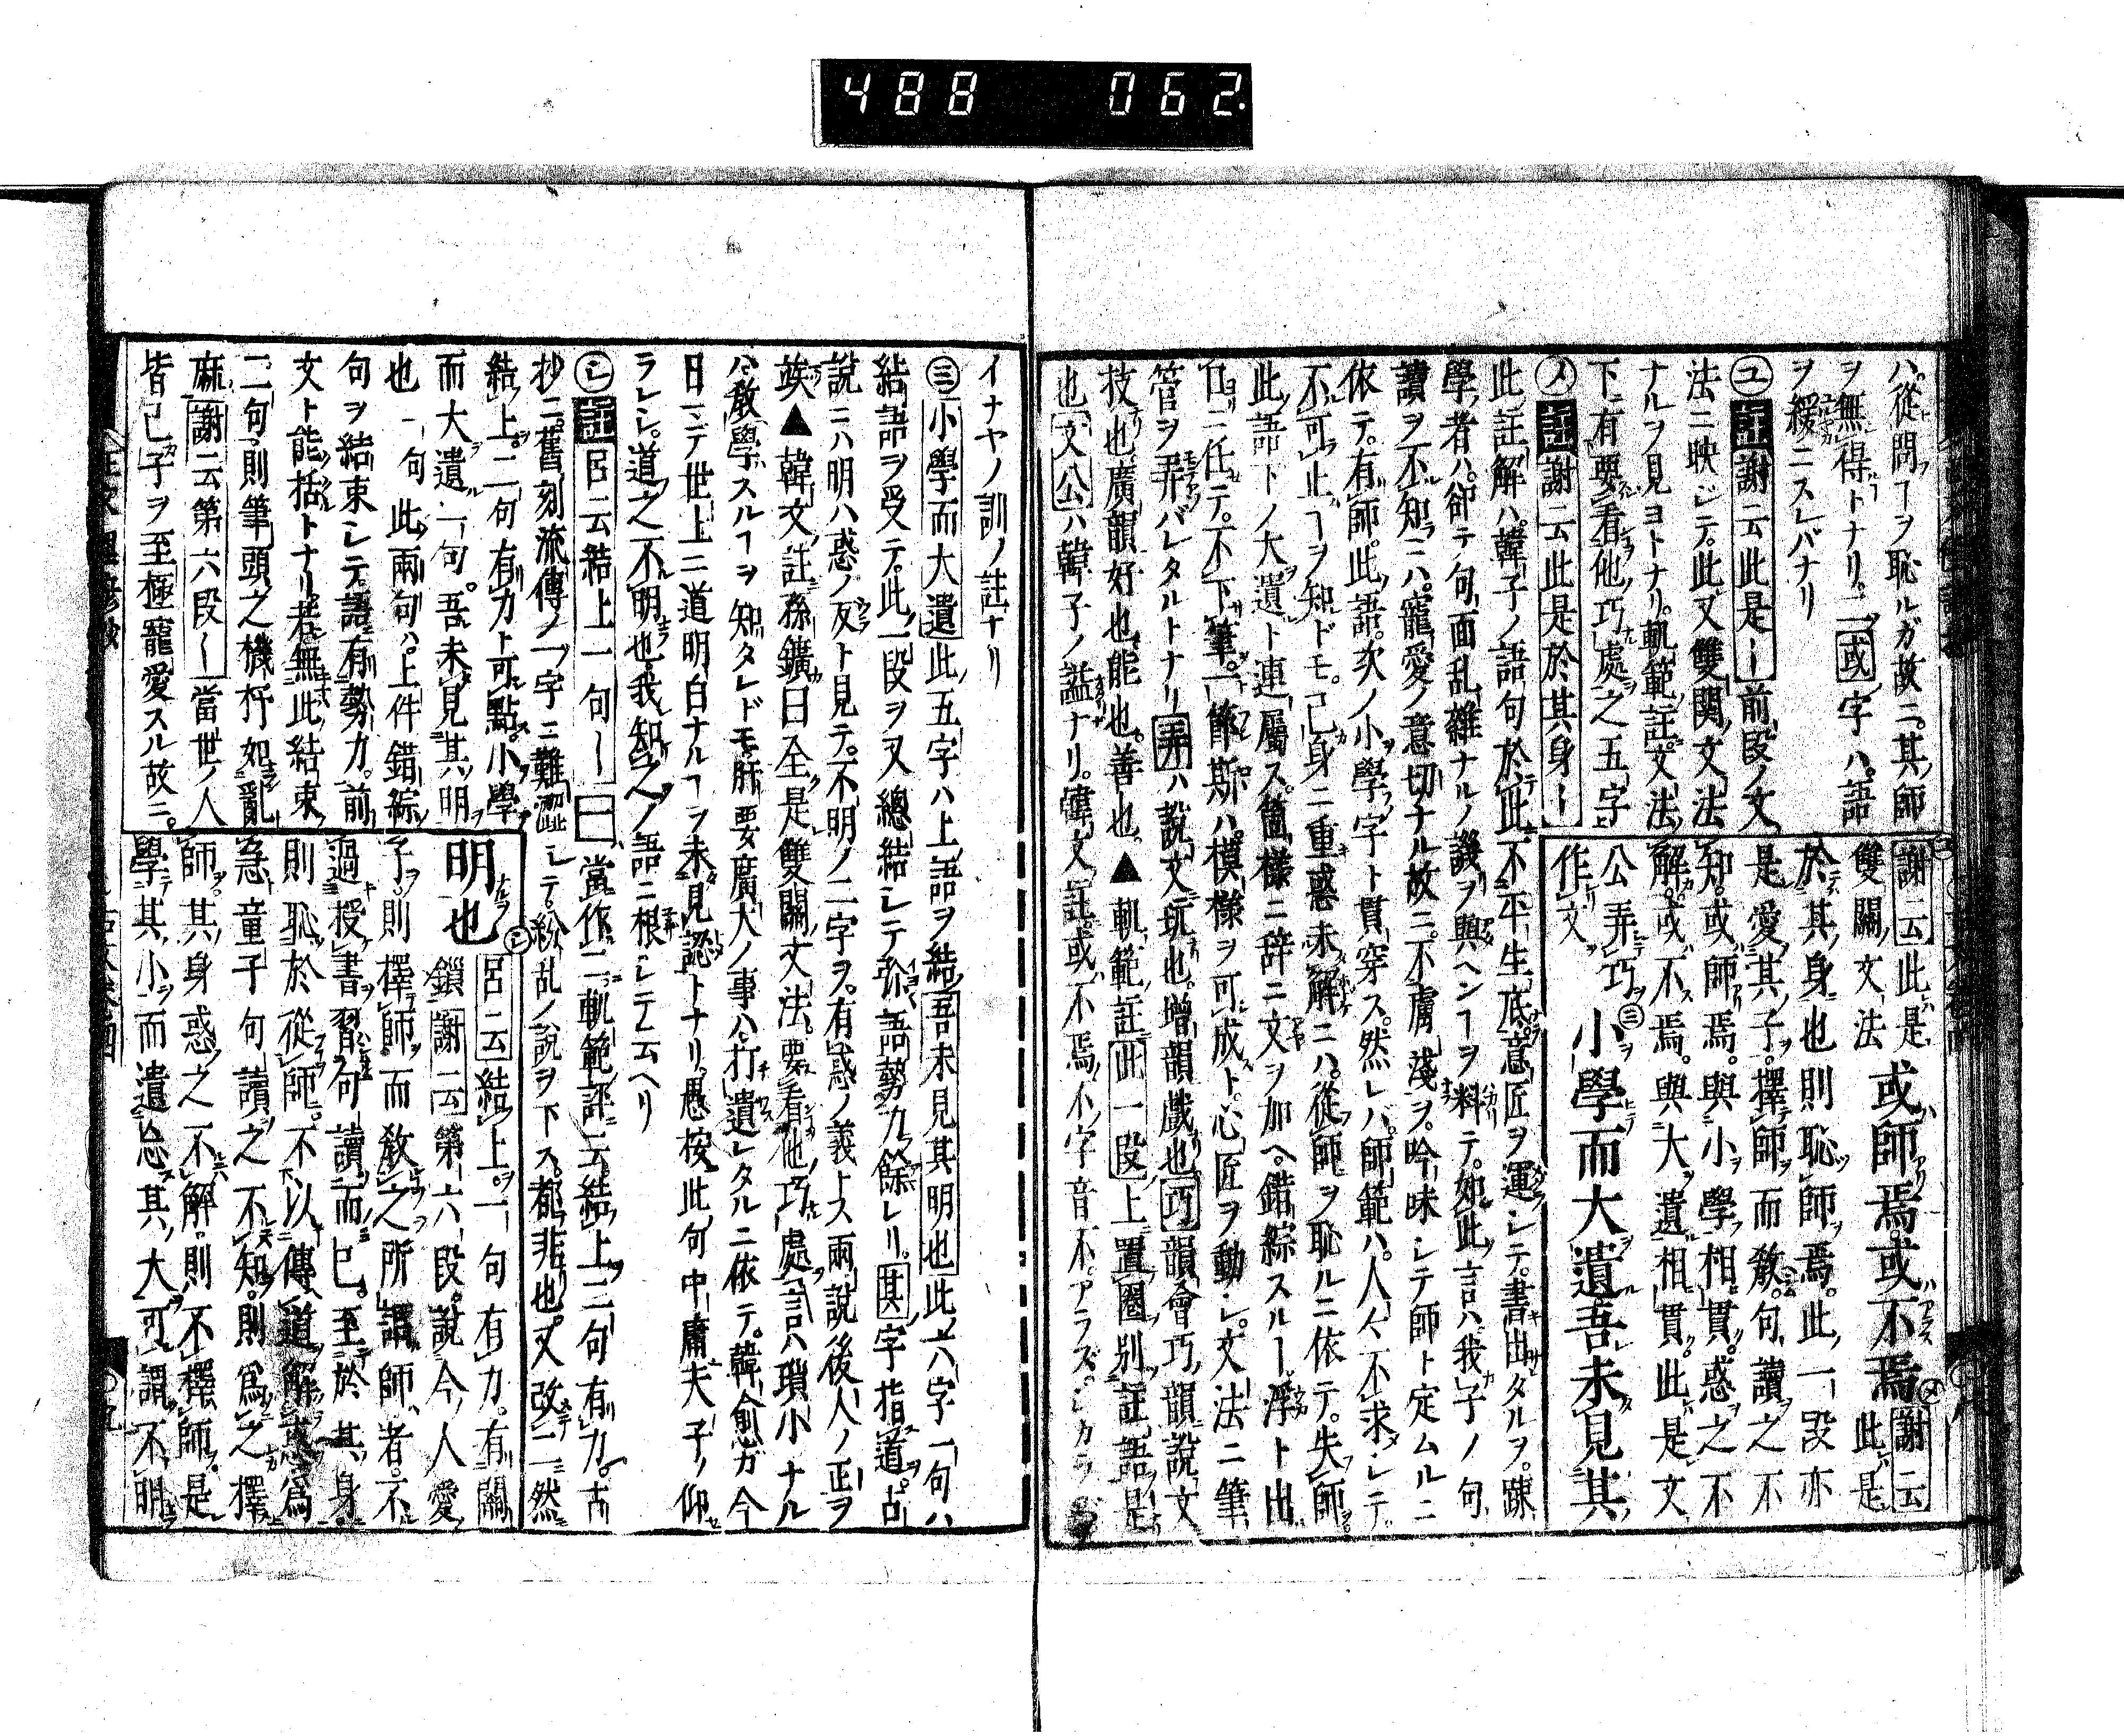 488 062
ハ從問ヿヲ恥ルガ故ニ其師
ヲ無得トナリ二或字ハ語
ヲ緩ニスレバナリ
ユ註謝云此是ー前段ノ文
法ニ映ジテ此又雙関文法
ナルヲ見ヨトナリ軌範註文法
下有要看他巧處之五字
メ註謝云此是於其身ー
謝云此是
雙關文法
或師焉或不焉
謝云
此是
於其身也則恥師焉此一段亦
是愛其子擇師而教句讀之不
知或師焉與小學相貫惑之不
解或不焉與大遺相貫此是文
公弄巧
作文
小學而大遺吾未見其
此註解ハ韓子ノ語句於此不平生底意匠ヲ運シテ書出タルヲ踈
學者ハ卻テ句面乱雜ナルノ譏ヲ興ヘンヿヲ料テ如此言ハ我子ノ句
讀ヲ不知ニハ寵愛ノ意切ナル故ニ不膚淺ヲ吟味シテ師ト定ムルニ
依テ有師此語次ノ小學字ト貫穿ス然レバ師範ハ人々不求シテ
不可止ヿヲ知ドモ己身ニ重惑未解ニハ從師ヲ恥ルニ依テ失師
此語下ノ大遺ト連屬ス箇樣ニ辞ニ文ヲ加ヘ錯綜スルー浮ト出
口ニ任テ不下筆一節斯ハ模樣ヲ可成ト心匠ヲ動シ文法ニ筆
管ヲ弄バレタルトナリ弄ハ說文玩也增韻戲也巧韻會巧韻說文
技也廣韻好也能也善也▲軌範註此一段上置圈別註語是
也文公ハ韓子ノ謚ナリ韓文註或不焉不字音不アラズシカラ
イナヤノ訓ノ註ナリ
三小學而大遺此五字ハ上語ヲ結吾未見其明也此六字一句ハ
結語ヲ受テ此一段ヲ又總結シテ弥語勢力餘レリ其字指道古
說ニハ明ハ惑ノ反ト見テ不明ノ二字ヲ有惑ノ義トス兩說後人ノ正ヲ
竢▲韓文註孫鑛曰全是雙關文法要看他巧處言ハ瑣小ナル
ハ教學スルヿヲ知タレドモ肝要廣大ノ事ハ打遺レタルニ依テ韓愈ガ今
日マデ世上ニ道明白ナルヿヲ未見認トナリ愚按此句中庸夫子ノ仰
ラレシ道之不明也我知之ノ語ニ根シテ云ヘリ
シ註呂云結上一句ー一當作二軌範評云結上二句有力古
抄ニ舊刻流傳ノ一字ニ難澀シテ紛乱ノ說ヲ下ス都非也又改二然
結上二句有力ト可點小學
而大遺一句吾未見其明
也一句此兩句ハ上件錯綜
句ヲ結束シテ語有勢力前
文ト能括トナリ若無此結束
二句則筆頭之機杼如亂
麻謝云第六段ー當世ノ人
皆己子ヲ至極寵愛スル故ニ
明也
呂云結上一句有力有關
鎖謝云第六段說今人愛
子則擇師而教之所謂師者不
過授書習句讀而已至於其身
則恥於從師不以傳道解惑爲
急童子句讀之不知則爲之擇
師其身惑之不解則不擇師是
學其小而遺忘其大可謂不明